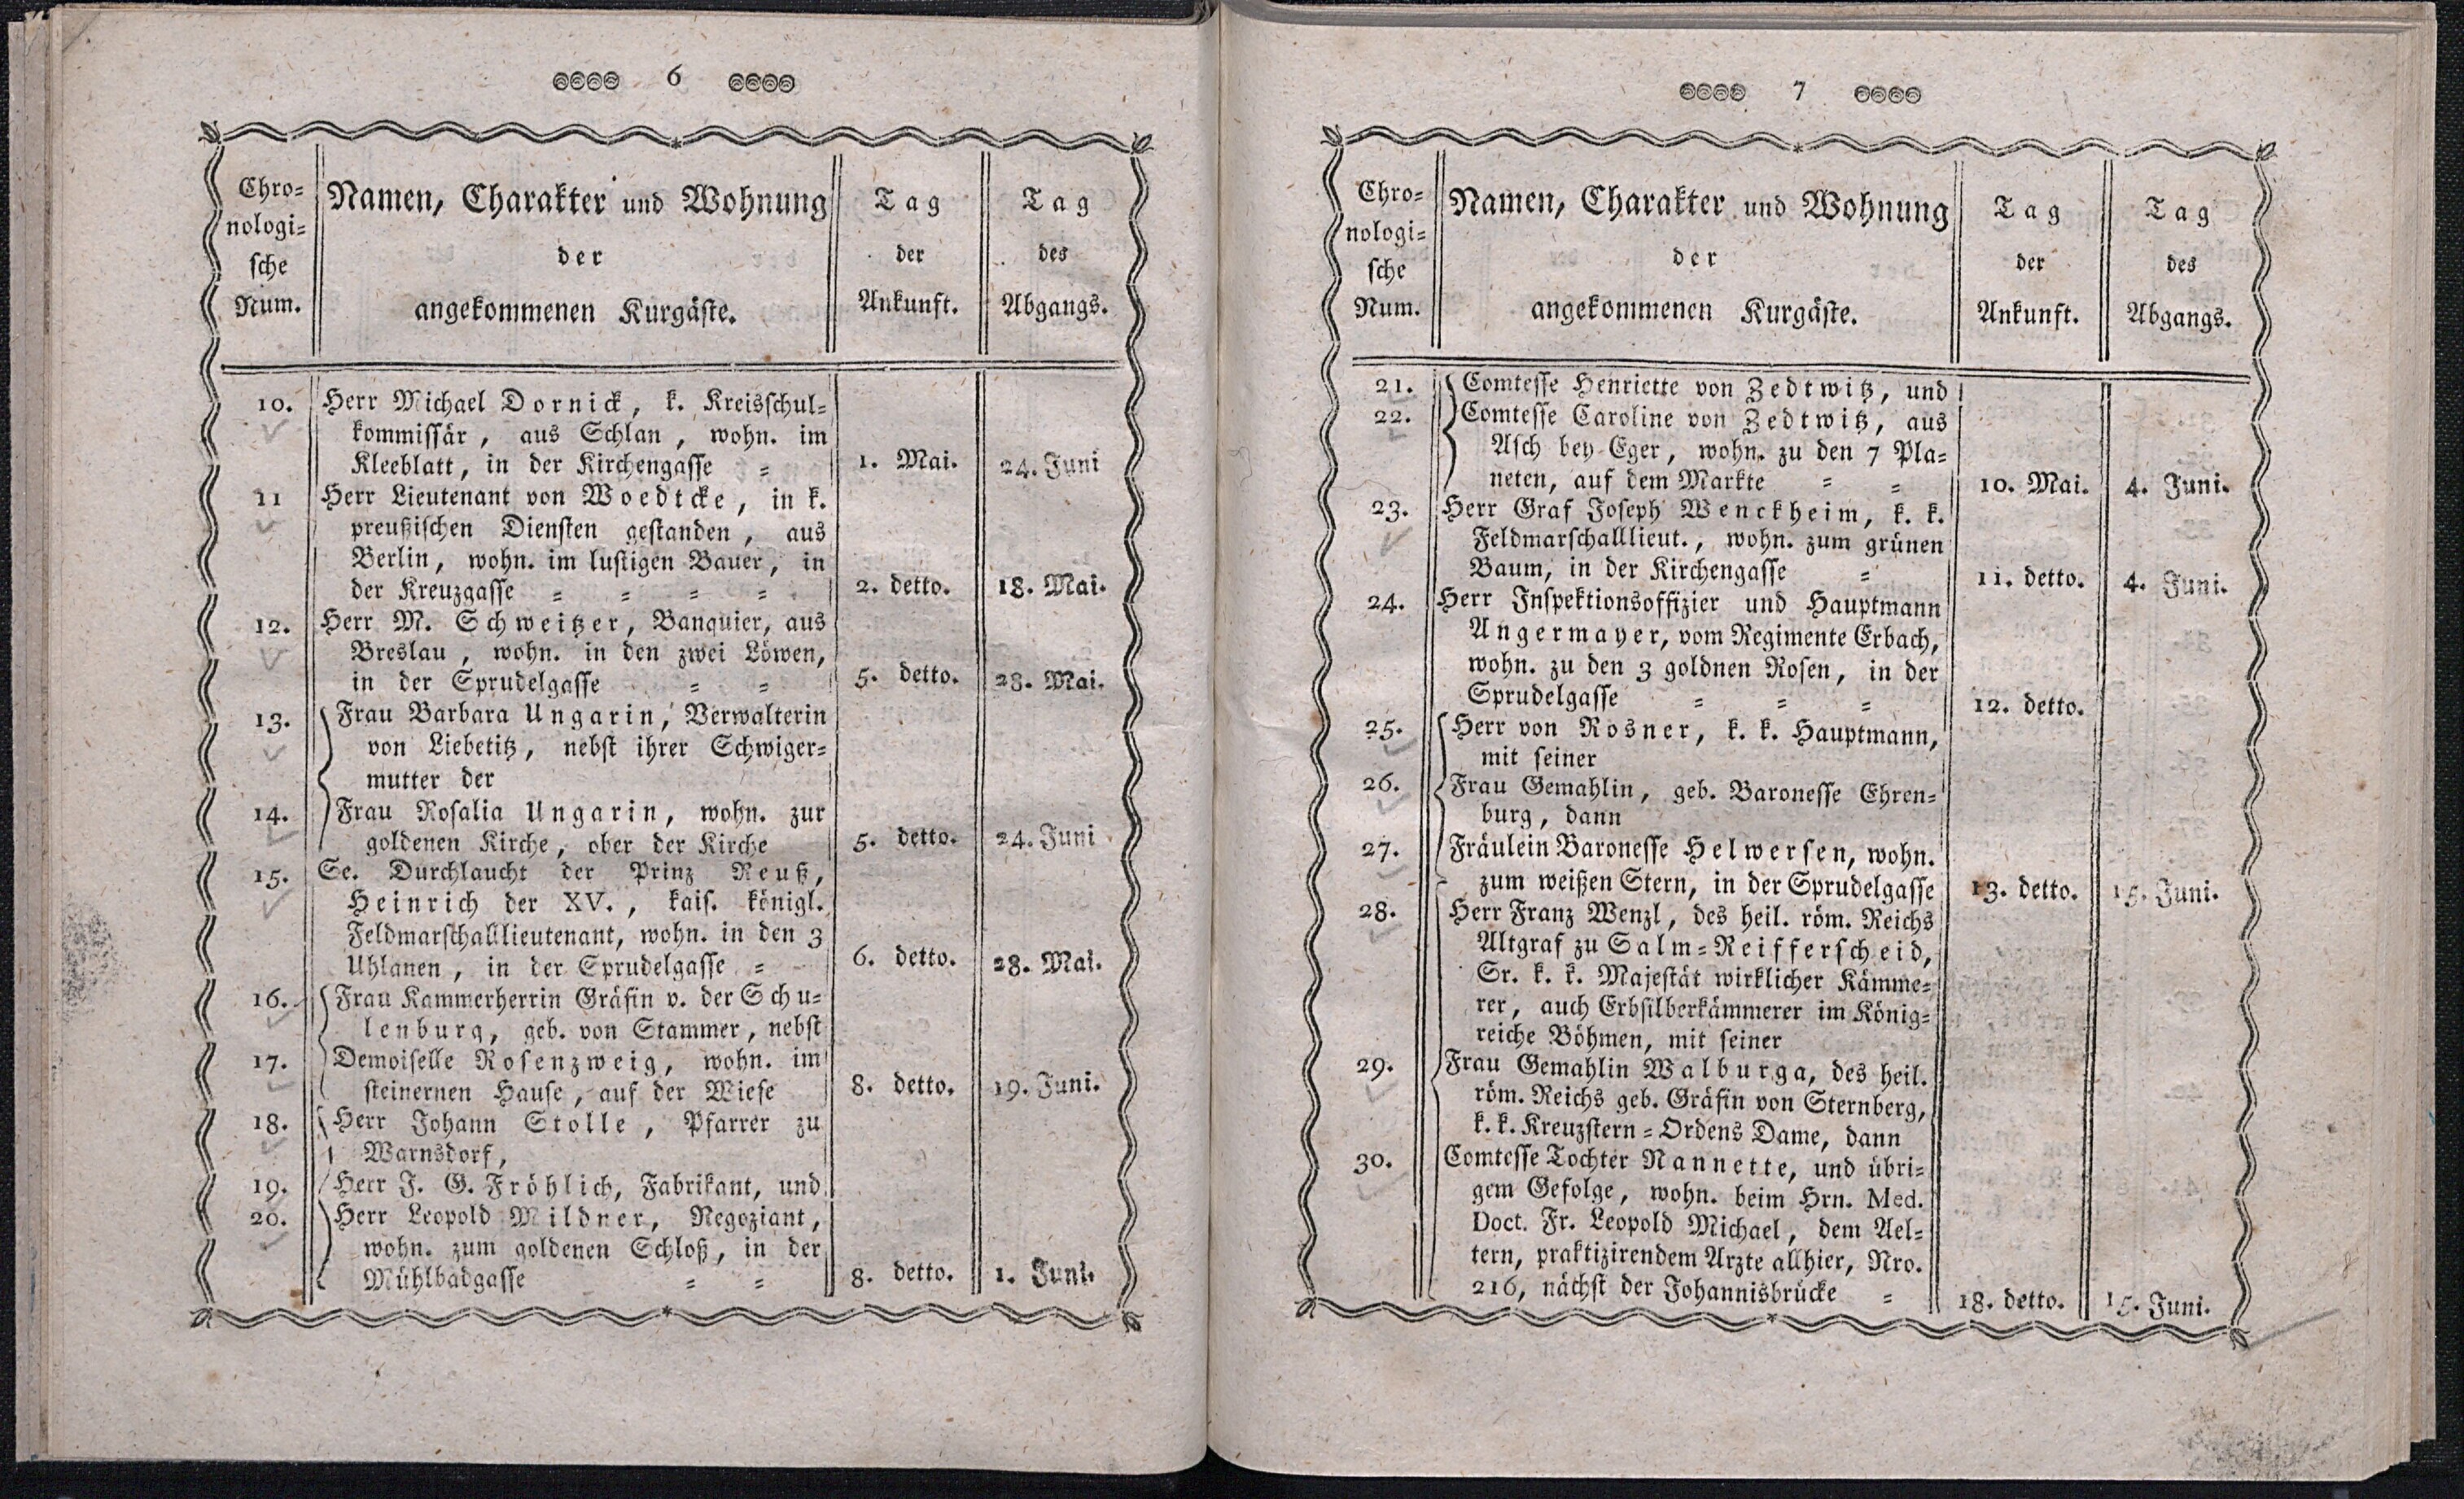 6
Chro-
nologi-
sche
Num.
Namen, Charakter und Wohnung
der
angekommenen Kurgäste.
Tag
der
Ankunft.
Tag
des
Abgangs.
10. Herr Michael Dornick, k. Kreisschul-
kommissär, aus Schlan, wohn. im
Kleeblatt, in der Kirchengasse = 1. Mai. 24. Juni
11 Herr Lieutenant von Woedtcke, in k.
preußischen Diensten gestanden, aus
Berlin, wohn. im lustigen Bauer, in
der Kreuzgasse = = = = 2. detto. 18. Mai.
12. Herr M. Schweitzer, Banquier, aus
Breslau, wohn. in den zwei Löwen,
in der Sprudelgasse = = 5. detto. 23. Mai.
13. Frau Barbara Ungarin, Verwalterin
von Liebetitz, nebst ihrer Schwiger-
mutter der
14. Frau Rosalia Ungarin, wohn. zur
goldenen Kirche, ober der Kirche 5. detto. 24. Juni
15. Se. Durchlaucht der Prinz Reuß,
Heinrich der XV., kais. königl.
Feldmarschalllieutenant, wohn. in den 3
Uhlanen, in der Sprudelgasse = 6. detto. 28. Mai.
16. Frau Kammerherrin Gräfin v. der Schu-
lenburg, geb. von Stammer, nebst
17. Demoiselle Rosenzweig, wohn. im
steinernen Hause, auf der Wiese 8. detto. 19. Juni.
18. Herr Johann Stolle, Pfarrer zu
Warnsdorf,
19. Herr J. G. Fröhlich, Fabrikant, und
20. Herr Leopold Mildner, Negoziant,
wohn. zum goldenen Schloß, in der
Mühlbadgasse = = 8. detto. 1. Juni.
7
Chro-
nologi-
sche
Num.
Namen, Charakter und Wohnung
der
angekommenen Kurgäste.
Tag
der
Ankunft.
Tag
des
Abgangs.
21. Comtesse Henriette von Zedtwitz, und
22. Comtesse Caroline von Zedtwitz, aus
Asch bey Eger, wohn. zu den 7 Pla-
neten, auf dem Markte = = 10. Mai. 4. Juni.
23. Herr Graf Joseph Wenckheim, k. k.
Feldmarschalllieut., wohn. zum grünen
Baum, in der Kirchengasse = 11. detto. 4. Juni.
24. Herr Inspektionsoffizier und Hauptmann
Angermayer, vom Regimente Erbach,
wohn. zu den 3 goldnen Rosen, in der
Sprudelgasse = = = 12. detto.
25. Herr von Rosner, k. k. Hauptmann,
mit seiner
26. Frau Gemahlin, geb. Baronesse Ehren-
burg, dann
27. Fräulein Baronesse Helwersen, wohn.
zum weißen Stern, in der Sprudelgasse 13. detto. 15. Juni.
28. Herr Franz Wenzl, des heil. röm. Reichs
Altgraf zu Salm-Reifferscheid,
Sr. k. k. Majestät wirklicher Kämme-
rer, auch Erbsilberkämmerer im König-
reiche Böhmen, mit seiner
29. Frau Gemahlin Walburga, des heil.
röm. Reichs geb. Gräfin von Sternberg,
k. k. Kreuzstern-Ordens Dame, dann
30. Comtesse Tochter Nannette, und übri-
gem Gefolge, wohn. beim Hrn. Med.
Doct. Fr. Leopold Michael, dem Ael-
tern, praktizirendem Arzte allhier, Nro.
216, nächst der Johannisbrücke = 18. detto. 15. Juni.